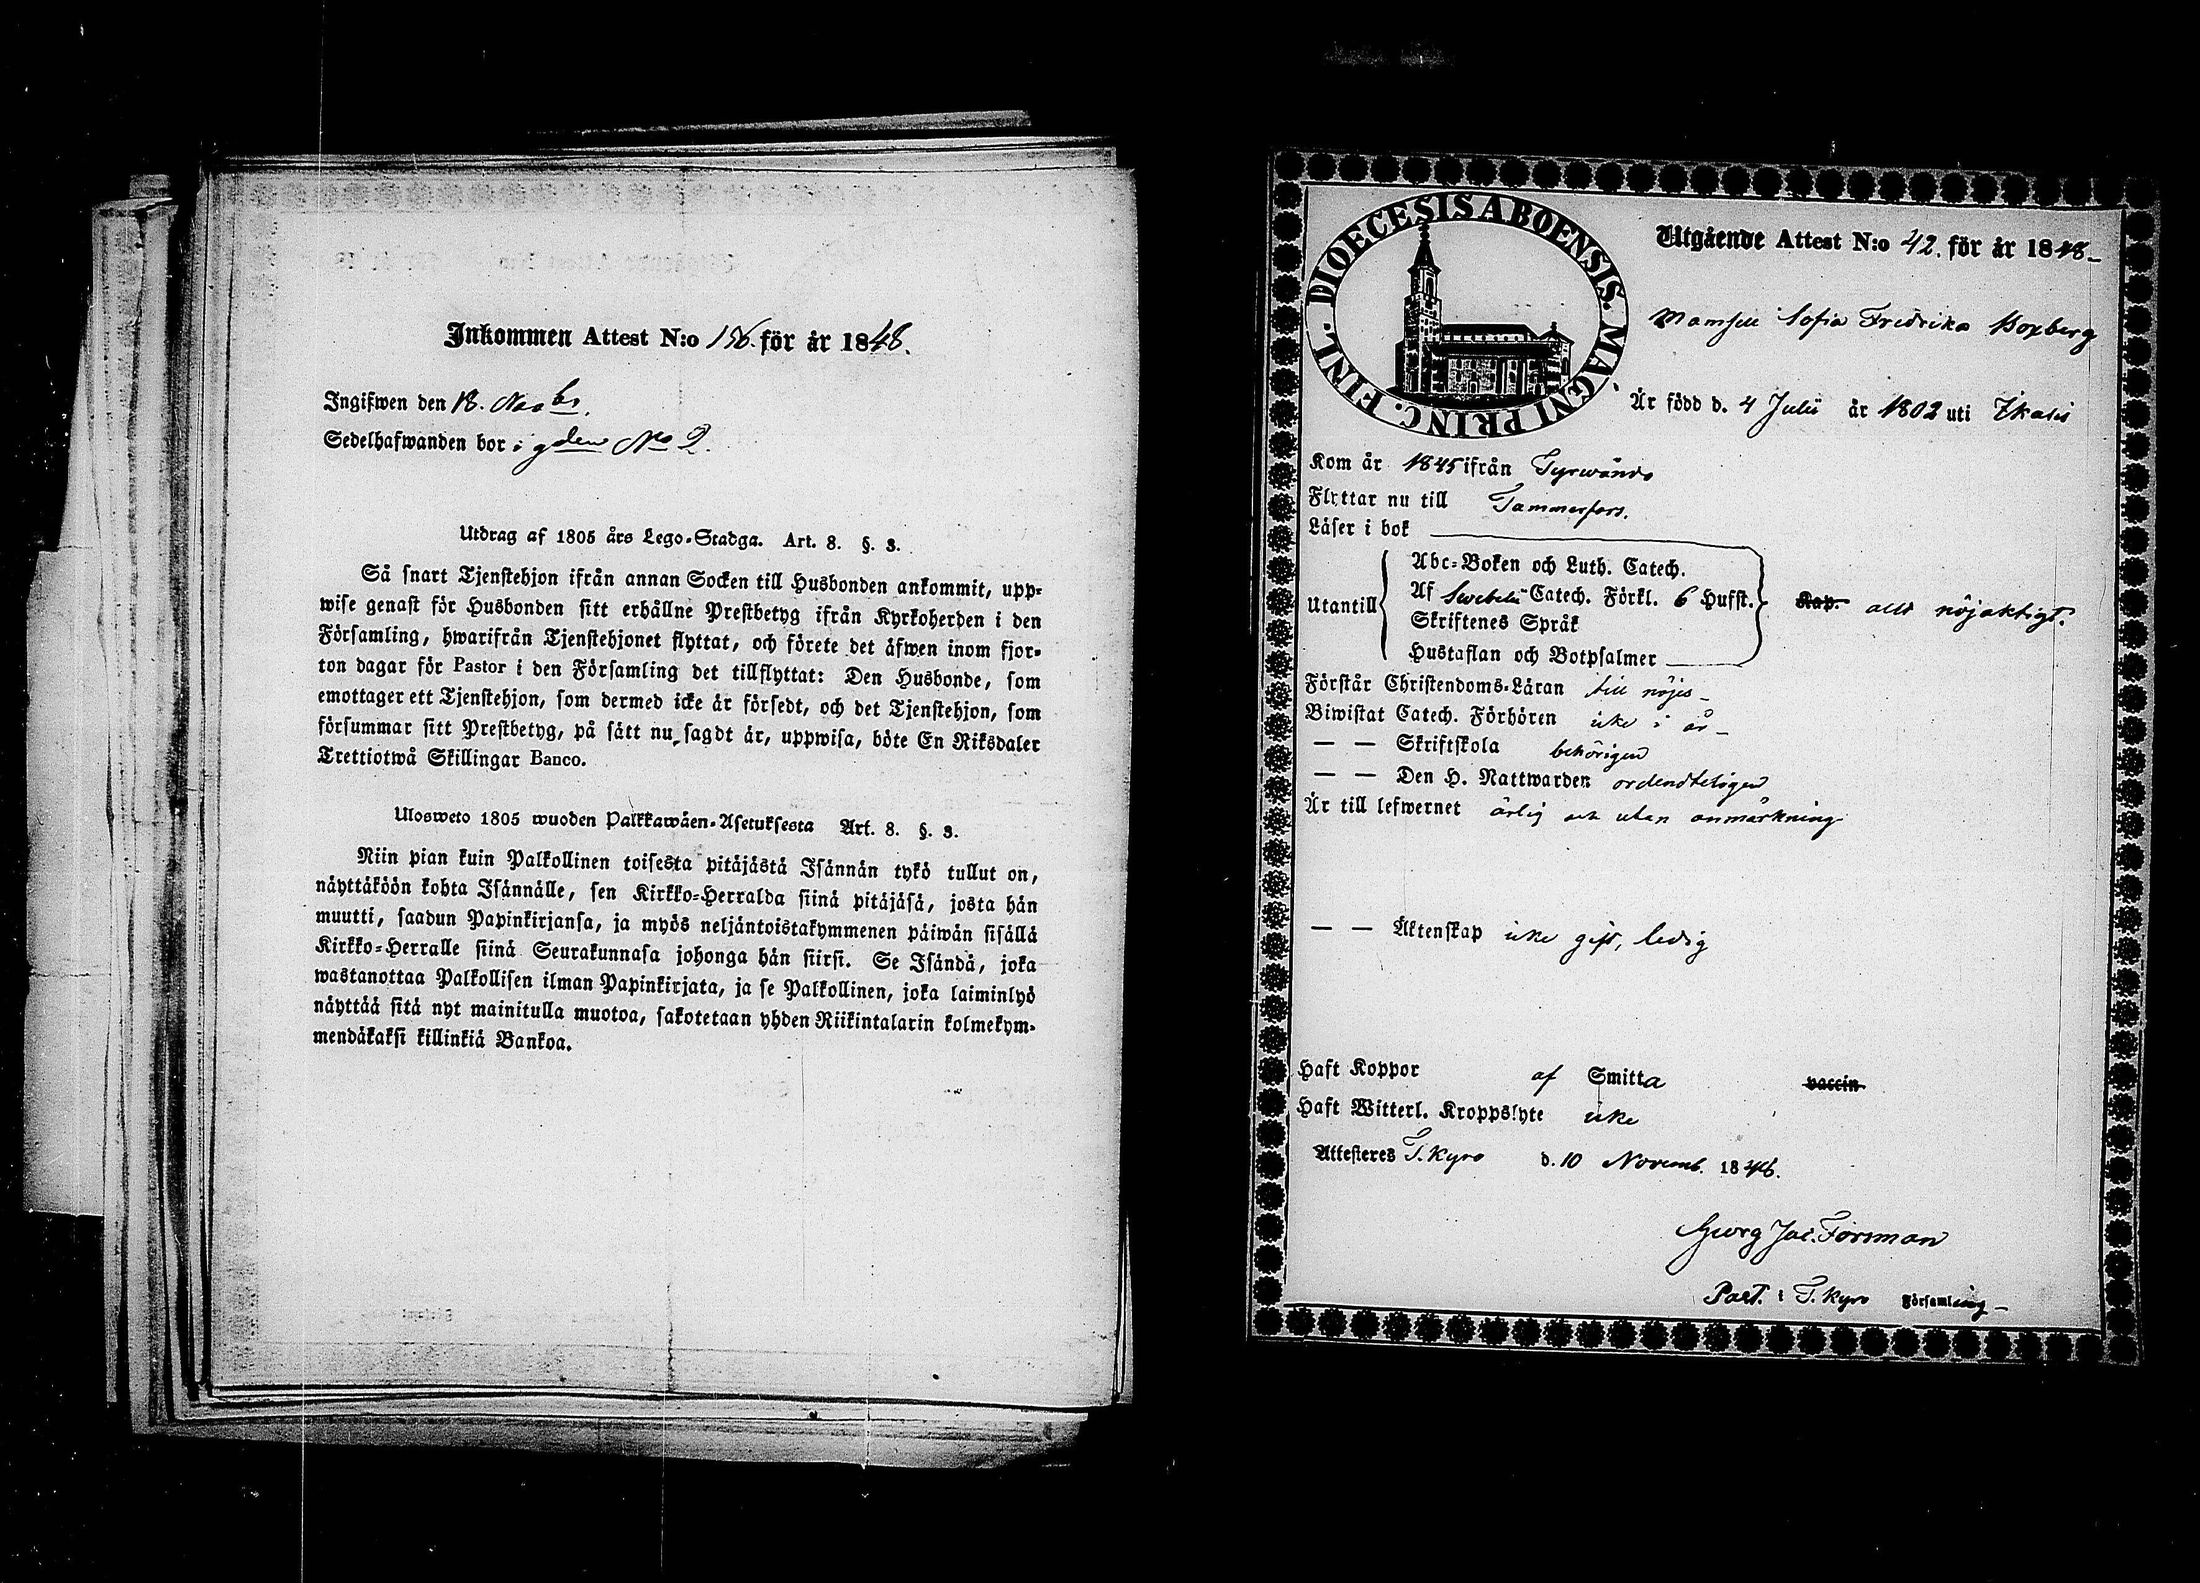 Inkommen Attest N:o 156. för år 1848.
Ingifwen den 18. Novbr.
Sedelhafwanden bor i gden No 2.
Utdrag af 1805 års Lego-Stadga. Art. 8. §. 3.
Så snart Tjenstehjon ifrån annan Socken till Husbonden ankommit, upp-
wise genast för Husbonden sitt erhållne Prestbetyg ifrån Kyrkoherden i den
Församling, hwarifrån Tjenstehjonet flyttat, och förete det äfwen inom fjor-
ton dagar för Pastor i den Församling det tillflyttat: Den Husbonde, som
emottager ett Tjenstehjon, som dermed icke är försedt, och det Tjenstehjon, som
försummar sitt Prestbetyg, på sätt nu sagdt är, uppwisa, böte En Riksdaler
Trettiotwå Skillingar Banco.
Ulosweto 1805 wuoden Palkkawäen-Asetuksesta Art. 8. §. 3.
Niin pian kuin Palkollinen toisesta pitäjästä Isännän tykö tullut on,
näyttäköön kohta Isännälle, sen Kirkko-Herralda siinä pitäjäsä, josta hän
muutti, saadun Papinkirjansa, ja myös neljäntoistakymmenen päiwän sisällä
Kirkko-Herralle siinä Seurakunnasa johonga hän siirsi. Se Isändä, joka
wastanottaa Palkollisen ilman Papinkirjata, ja se Palkollinen, joka laiminlyö
näyttää sitä nyt mainitulla muotoa, sakotetaan yhden Riikintalarin kolmekym-
mendäkaksi killinkiä Bankoa.
DIOECESIS ABOENSIS. MAGNI PRINC. FINL.
Utgående Attest N:o 42. för år 1848
Mamsell Sofia Fredrika Boxberg
Är född d. 4 Julii år 1802 uti Ikalis
Kom år 1845 ifrån Tyrwändö
Flyttar nu till Tammerfors.
Läser i bok
Utantill
Abc-Boken och Luth. Catech.
Af Swebelii Catech. Förkl. 6 Hufst.
Skriftenes Språk
Hustaflan och Botpsalmer
Kap. allt nöjaktigt.
Förstår Christendoms-Läran till nöjes
Biwistat Catech. Förhören icke i år
— — Skriftskola behörigen
— — Den H. Nattwarden ordendteligen
Är till lefwernet ärlig och utan anmärkning
— — Äktenskap icke gift, ledig
Haft Koppor af Smitta vaccin
Haft Witterl. Kroppslyte icke
Attesteres T. Kyro d. 10 Novemb. 1848.
Georg Jac. Forsman
Past. i T. Kyro Församling